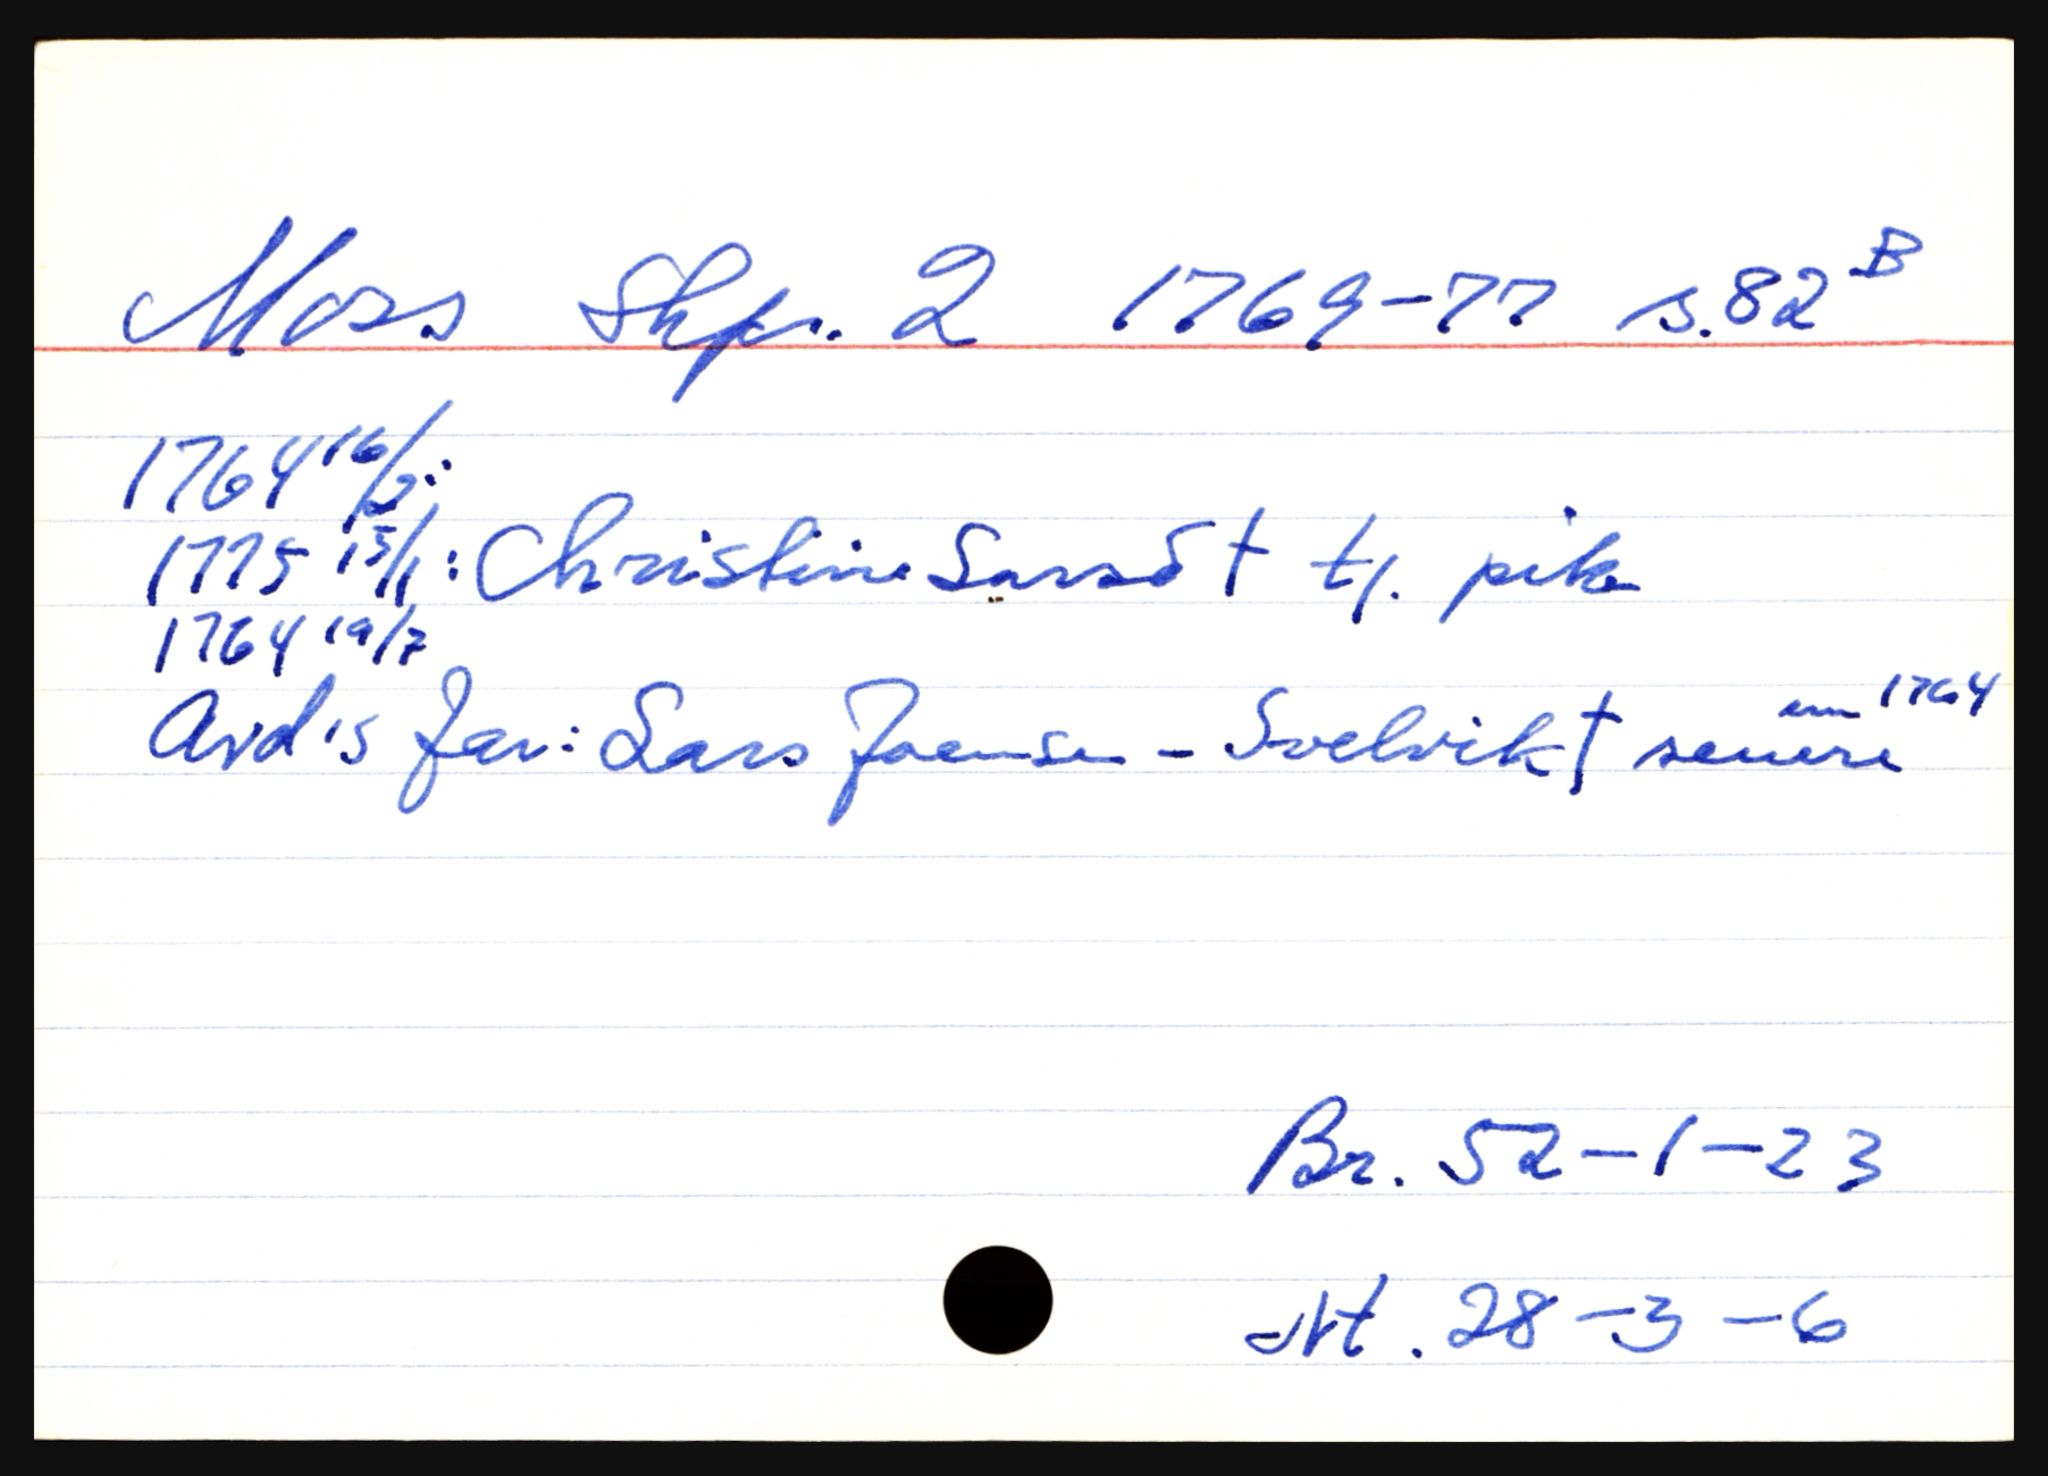 Moss Skpr. 2 1769-77 s.82 B
1764 16/2:
1775 13/1: Christine Larsd † tj. pike
1764 19/7
Avd's far: Lars Joensen - Svelvik † senere enn 1764
Br. 52-1-23
Nt. 28-3-6